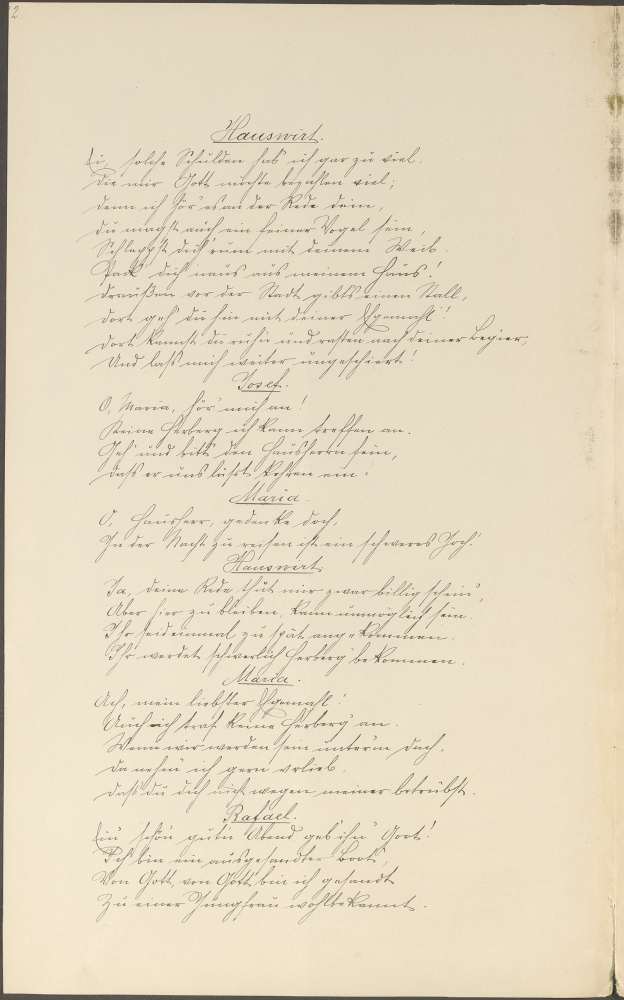 2
Hauswirt.
Ei, solche Schulden hab ich gar zu viel.
Die mir Gott möchte bezahlen viel;
Denn ich hör' es an der Rede dein,
du magst auch ein feiner Vogel sein,
Schleppst dich 'rum mit deinem Weib.
Pack' dich 'naus aus meinem Haus!
Draußen vor der Stadt gibts einen Stall,
dort geh' du hin mit deiner Gemahl!
Dort kannst du ruh'n und rasten nach deiner Begier,
Und laß mich weiter ungeschiert!
Josef.
O, Maria, hör' mich an!
Keine Herberg ich kann treffen an.
Geh' und bitt' den Hausherrn fein,
daß er uns läßt kehren ein.
Maria.
O, Hausherr, gedenke doch,
In der Nacht zu reisen ist ein schweres Joch!
Hauswirt.
Ja, deine Rede thut mir zwar billig schein',
Aber hier zu bleiben, kann unmöglich sein.
Ihr seid einmal zu spät angekommen.
Ihr werdet schwerlich Herberg' bekommen.
Maria.
Ach, mein liebster Gemahl!
Auch ich traf keine Herberg' an.
Wenn wir werden sein unter'm Dach,
Da nehm' ich gern vorlieb.
daß du dich nicht wegen meiner betrübst.
Rafael.
Ein' schön' guten Abend geb' ihn' Gott!
Ich bin ein ausgesandter Boot',
Von Gott, von Gott bin ich gesandt
Zu einer Jungfrau wohlbekannt.